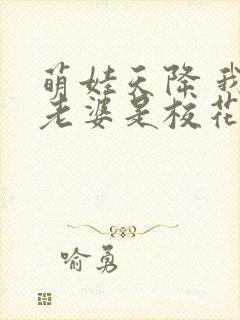 萌娃天降 我
老婆是校花
喻勇